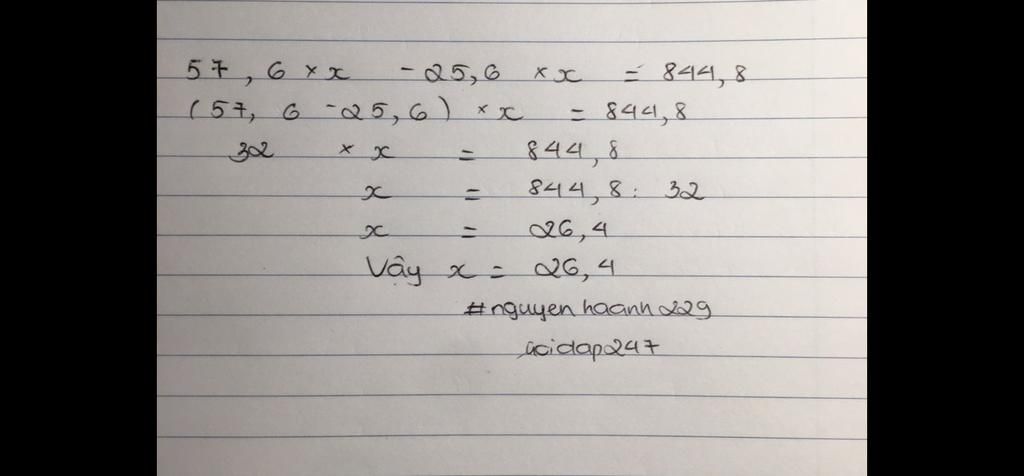 57,6 × x - 25,6 × x = 844,8
(57,6 - 25,6) × x = 844,8
32 × x = 844,8
x = 844,8 : 32
x = 26,4
Vậy x = 26,4
#nguyenhaanh229